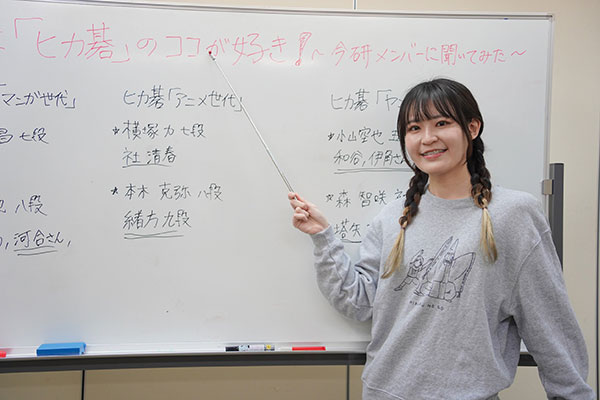 「ヒカ碁」のココが好き!~今研メンバーに聞いてみた~
「マンガ世代」
七段
八段
河合さん,
ヒカ碁「アニメ世代」
*横塚 力 七段
社 清春
*本木 克弥 八段
緒方九段
ヒカ碁「ヤ
*小山空也 五
和谷,伊角さ
*森 智咲
塔矢